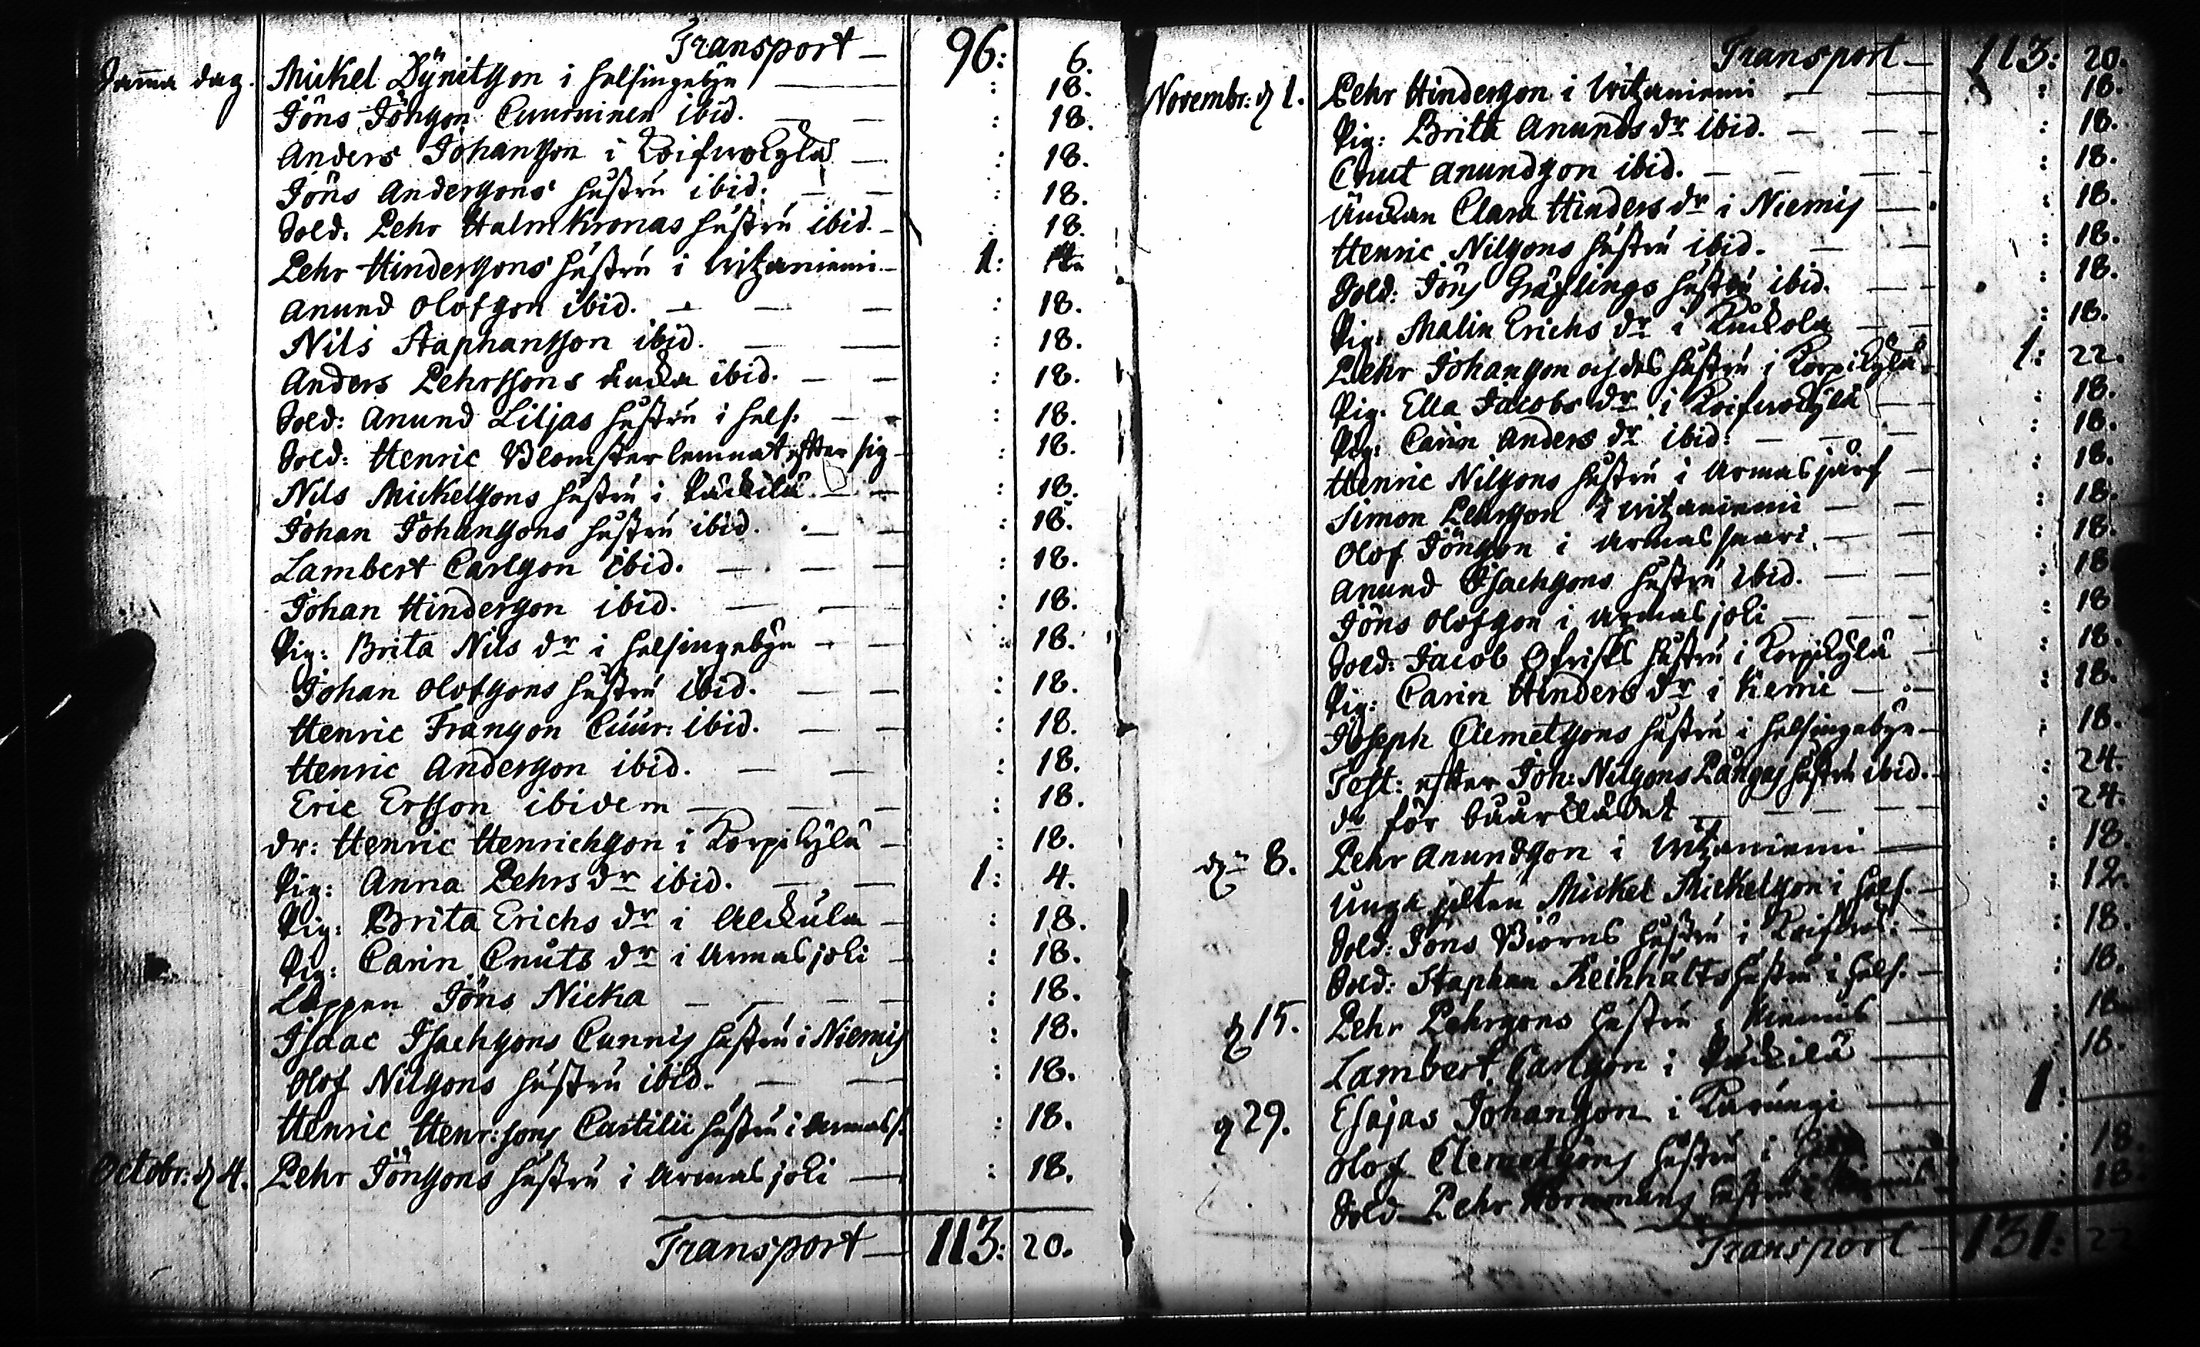 Transport — 96: 6.
Samma dag. Mickel Dÿnitzon i Helsingebÿn — : 18.
Jöns Jönson Cuurninen ibid. — — : 18.
Anders Johansson i Koifwokÿlä — : 18.
Jöns Andersons hustru ibid. — — : 18.
Sold. Pehr Halmkronas hustru ibid. — : 18.
Pehr Hindersons hustru i Witzaniemi — 1:
Anund Olofson ibid. — — — : 18.
Nils Staphansson ibid. — — : 18.
Anders Pehrssons änckia ibid. — — : 18.
Sold: Anund Liljas hustru i Hels: — : 18.
Sold: Henric Blomster lemnat efter sig — : 18.
Nils Mickelsons hustru i Päckilä — : 18.
Johan Johansons hustru ibid. — — : 18.
Lambert Carlson ibid. — — — : 18.
Johan Hinderson ibid. — — — : 18.
Pig: Brita Nils dr i Helsingebÿn — — : 18.
Johan Olofsons hustru ibid. — — : 18.
Henric Franson Cuur: ibid. — — : 18.
Henric Anderson ibid. — — : 18.
Eric Ersson ibidem — — — : 18.
Dr: Henric Henrichson i Korpikÿlä — : 18.
Pig: Anna Pehrs dr ibid. — — 1: 4.
Pig: Brita Erichs dr i Alckula — : 18.
Pig: Carin Cnuts dr i Armasjoki — : 18.
Lappen Jöns Nicka — — — — : 18.
Isaac Isachsons Cunnis hustru i Niemis : 18.
Olof Nilsons hustru ibid. — — : 18.
Henric Henr:sons Castilii hustru i Armass. : 18.
Octobr: d 4. Pehr Jönsons hustru i Armasjoki — : 18.
Transport — 113: 20.
Transport — 113: 20.
Novembr: d 1. Pehr Hinderson i Witzaniemi — — : 18.
Pig: Brita Anunds dr ibid. — — — : 18.
Cnut Anundson ibid. — — — : 18.
Änckan Clara Hinders dr i Niemis — : 18.
Henric Nilsons hustru ibid. — — : 18.
Sold: Jöns Gräflings hustru ibid. — : 18.
Pig: Malin Erichs dr i Kuckola — : 18.
Pehr Johanson och des hustru i Korpikÿlä. 1: 22.
Pig. Ella Jacobs dr i Koifwokÿlä — : 18.
Pig: Carin Anders dr ibid: — — : 18.
Henric Nilsons hustru i Armasjärf — : 18.
Simon Pehrsson i Witzaniemi — — : 18.
Olof Jönson i Armassaari. — — : 18.
Anund Isachsons hustru ibid. — — : 18
Jöns Olofson i Armasjoki — — : 18
Sold: Jacob Qfrists hustru i Korpikÿlä — : 18.
Pig: Carin Hinders dr i Niemis — — : 18.
Joseph Clemetsons hustru i Helsingebÿn — : 18.
Test: efter Joh: Nilsons Pångas hustru ibid. — : 24.
do för båårklädet — — — : 24.
d 8. Pehr Anundson i Witzaniemi — : 18.
Unga jilten Mickel Mickelson i Hels. — : 12.
Sold: Jöns Biörns hustru i Koifwok: — : 18.
Sold: Staphan Reinhults hustru i Hels. — : 18.
d 15. Pehr Pehrsons hustru i Niemis — : 18
Lambert Carlson i Päckilä — : 18.
d 29. Esajas Johanson i Karungi — 1: —
Olof Clemetsons hustru i — : 18.
Sold. Pehr hustru i — : 18.
Transport — 131: 22